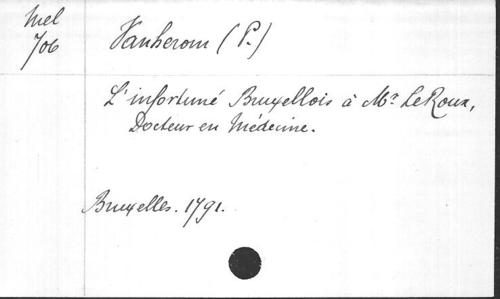 Mel
706
Vanherom (P.)
L'infortuné Bruxellois à Mr LeRoux,
Docteur en Médecine.
Bruxelles. 1791.